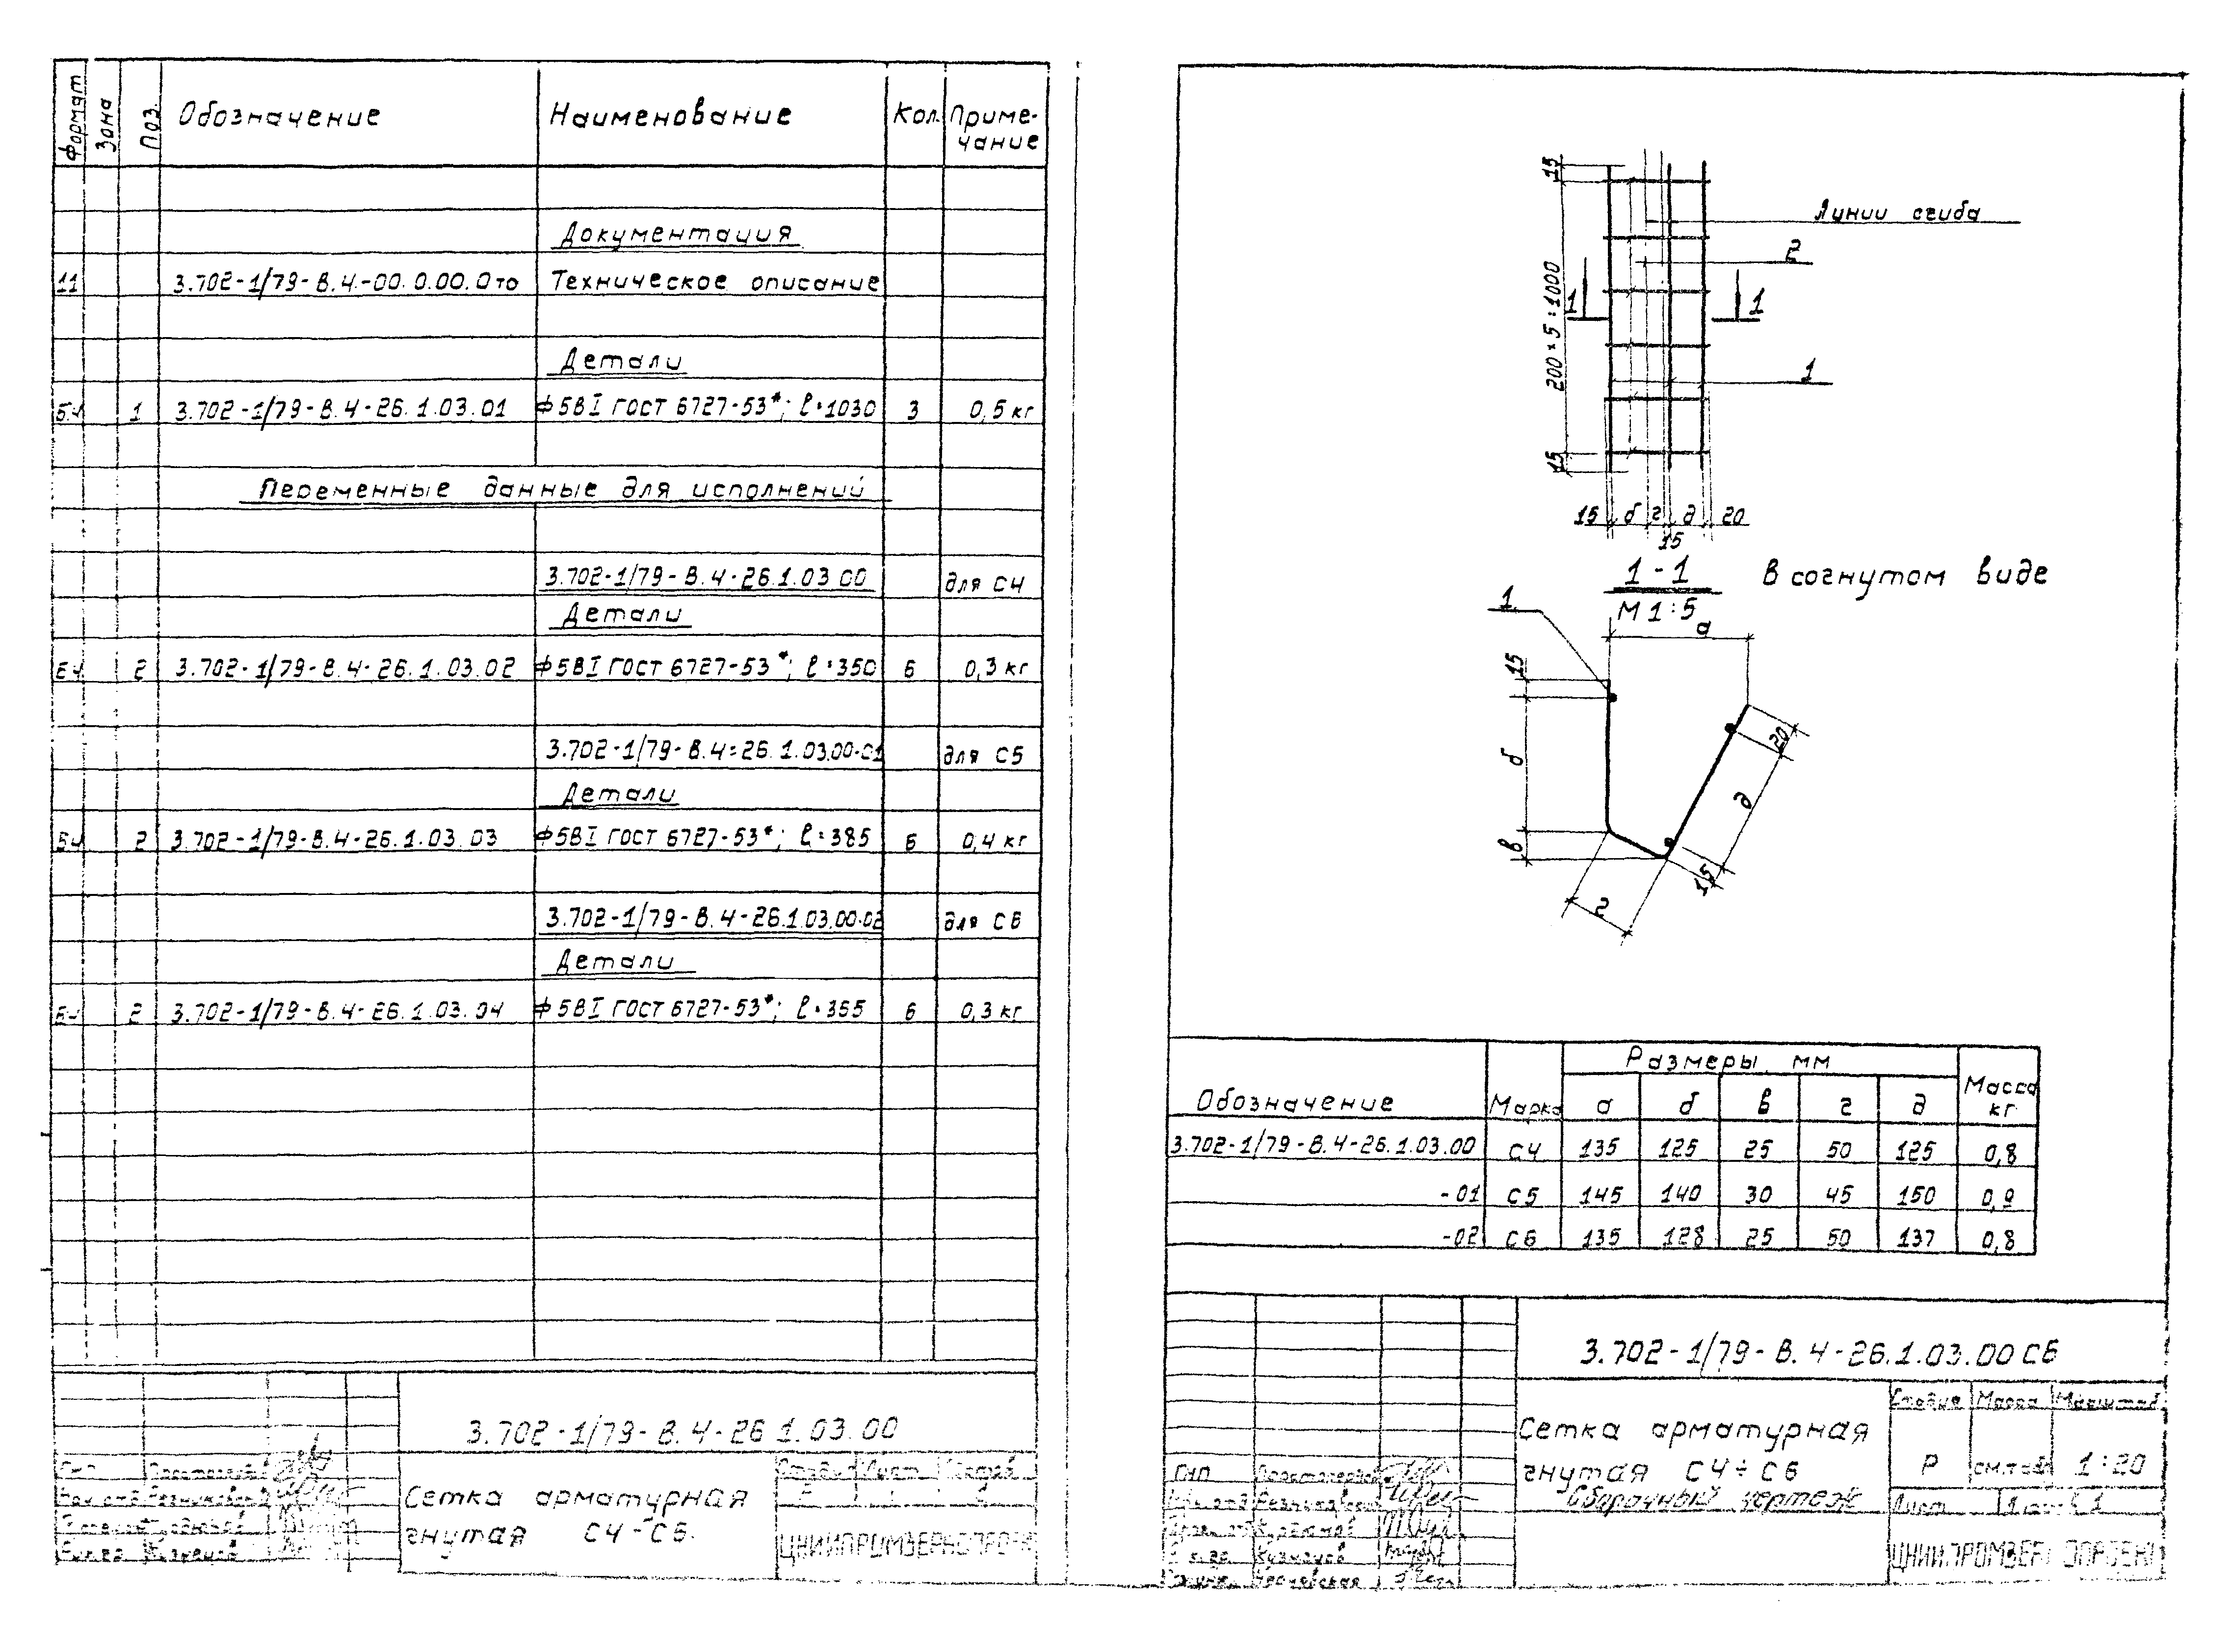 Формат
Зона
Поз.
Обозначение
Наименование
Кол.
Приме-
чание
Документация
11 3.702-1/79-В.4-00.0.00.0то Техническое описание
Детали
БЧ 1 3.702-1/79-В.4-26.1.03.01 ф5ВI ГОСТ 6727-53*; ℓ=1030 3 0,5 кг
Переменные данные для исполнений
3.702-1/79-В.4-26.1.03 00 для С4
Детали
БЧ 2 3.702-1/79-В.4-26.1.03.02 ф5ВI ГОСТ 6727-53*; ℓ=350 6 0,3 кг
3.702-1/79-В.4-26.1.03.00-01 для С5
Детали
БЧ 2 3.702-1/79-В.4-26.1.03.03 ф5ВI ГОСТ 6727-53*; ℓ=385 6 0,4 кг
3.702-1/79-В.4-26.1.03.00-02 для С6
Детали
БЧ 2 3.702-1/79-В.4-26.1.03.04 ф5ВI ГОСТ 6727-53*; ℓ=355 6 0,3 кг
3.702-1/79-В.4-26 1.03.00
Сетка арматурная
гнутая С4-С6.
Стадия Лист Листов
15
Линии сгиба
2
200×5=1000
1 1
1
15
15 б г д 20
15
1-1 В согнутом виде
М 1:5
1
а
15
б
в
20
д
15
г
Обозначение Марка Размеры, мм Масса
кг
а б в г д
3.702-1/79-В.4-26.1.03.00 С4 135 125 25 50 125 0,8
-01 С5 145 140 30 45 150 0,9
-02 С6 135 128 25 50 137 0,8
3.702-1/79-В.4-26.1.03.00 СБ
Сетка арматурная
гнутая С4÷С6
Сборочный чертеж
Стадия Масса Масштаб
Р см.табл 1:20
Лист
ГИП
Кузнецов